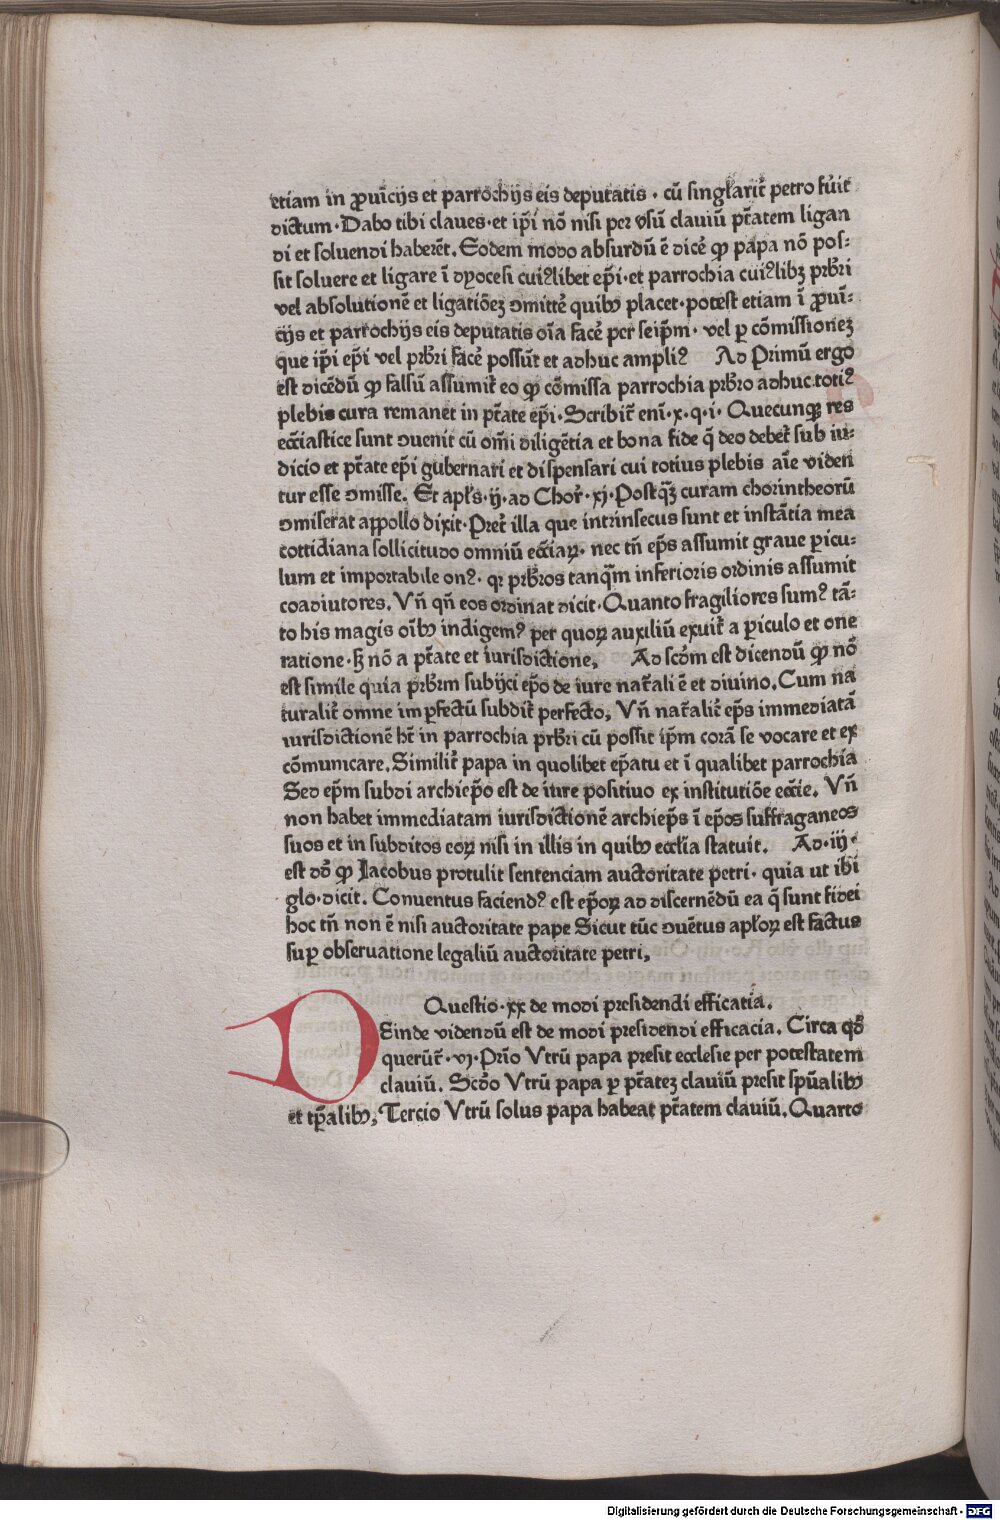 etiam in ꝓuı̄cijs et parrochijs eis deputatis · cū singlarit̃ petro fu̓it
dictum · Dabo tibi claues · et ip̄i nō nisi per vsū clauiū ptãtem ligan
di et soluendi haberēt. Eodem modo absurdū ē dice͛ ꝙ papa nō pos⸗
sit soluere et ligare ī dyocesi cuiꝰlibet ep̄i · et parrochia cuiꝰlibꝫ prb̄ri
vel absolutionē et ligatiōeꝫ ↄmitte͛ quibꝰ placet · potest etiam ī ꝓuı̄⸗
cijs et parrochijs eis deputatis oı̄a face͛ per seip̄m · vel ꝑ cōmissioneꝫ
que ip̄i ep̄i vel prb̄ri face͛ possūt et adhuc ampliꝰ Ad Primū ergo
est dicēdū ꝙ falsū assumit̃ eo ꝙ cōmissa parrochia prb̄ro adhuc totiꝰ
plebis cura remanet in ptãte ep̄i · Scribit̃ enı̄ · x · q · i · Quecunqꝫ res
ecc̄iastice sunt ↄuenit cū om̄i diligētia et bona fide q̄ deo debet̃ sub iu⸗
dicio et ptãte ep̄i gubernari et dispensari cui totius plebis aı̄e viden
tur esse ↄmisse. Et apl̄s · ij · ad Chor̃ · xj · Postq̄ꝫ curam chorintheorū
ↄmiserat appollo dixit · Pret̃ illa que intrinsecus sunt et instātia mea
cottidiana sollicitudo omniū ecc̄iaꝝ · nec tn̄ ep̄s assumit graue ꝑicu⸗
lum et importabile onꝰ · qꝛ prb̄ros tanq̄m inferioris ordinis assumit
coadiutores. Vn̄ qn̄ eos ordinat dicit · Quanto fragiliores sumꝰ tā⸗
to his magis oı̄bꝰ indigemꝰ per quoꝝ auxiliū exuit̃ a ꝑiculo et one
ratione · sꝫ nō a ptãte et iurisdictione, Ad scd̄m est dicendū ꝙ nō
est simile quia prb̄rm subijci ep̄o de iure nat̃ali ē et diuino. Cum na
turalit̃ omne imꝑfectū subdit̃ perfecto, Vn̄ nat̃alit̃ ep̄s immediatā
iurisdictionē ht̄ in parrochia prb̄ri cū possit ip̄m corā se vocare et ex
cōmunicare. Similit̃ papa in quolibet ep̄atu et ī qualibet parrochia
Sed ep̄m subdi archiep̄o est de iure positiuo ex institutiōe ecc̄ie. Vn̄
non habet immediatam iurisdictionē archiep̄s ī ep̄os suffraganeos
suos et in subditos eoꝝ nisi in illis in quibꝰ eccl̄ia statuit. Ad · iij ·
est dd̄ ꝙ Jacobus protulit sentenciam auctoritate petri · quia ut ibi
glo · dicit. Conuentus faciendꝰ est ep̄oꝝ ad discernēdū ea q̄ sunt fidei
hoc tn̄ non ē nisi auctoritate pape Sicut tūc ↄuētus apl̄oꝝ est factus
suꝑ obseruatione legaliū auctoritate petri,
Questio · xx de modi presidendi efficatia.
DEinde videndū est de modi presidendi efficacia. Circa qd̄
querūt̃ · vj · Prı̄o Vtrū papa presit ecclesie per potestatem
clauiū. Scd̄o Vtrū papa ꝑ ptãteꝫ clauiū presit spūalibꝰ
et tp̄alibꝰ, Tercio Vtrū solus papa habeat ptãtem clauiū. Quarto
Digitalisierung gefördert durch die Deutsche Forschungsgemeinschaft - DFG